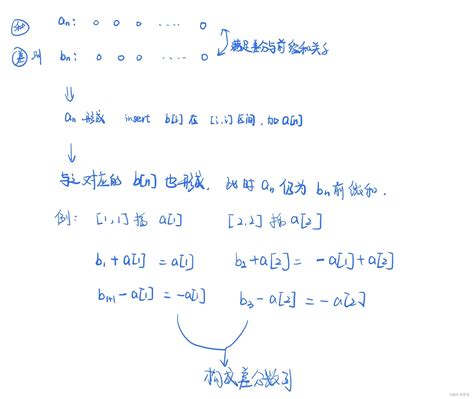 和 aₙ: 0 0 0 ..... 0
差别 bₙ: 0 0 0 ..... 0 满足差分与前缀和关系
↓
aₙ 形成 insert b[i] 在 [i,i] 区间, 加 a[n]
↓
与之对应的 b[n] 也形成, 此时 aₙ 仍为 bₙ 前缀和.
例: [1,1] 插 a[1] [2,2] 插 a[2]
b₁ + a[1] = a[1] b₂ + a[2] = -a[1] + a[2]
b₁₊₁ - a[1] = -a[1] b₃ - a[2] = -a[2]
构成差分数列